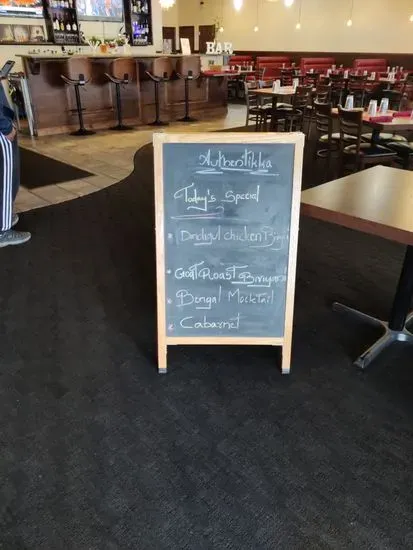 BAR
Authentikka
Today's Special
* Dindigul chicken
* Goat Roast Biriyani
* Bengal Mocktail
* Cabarnet